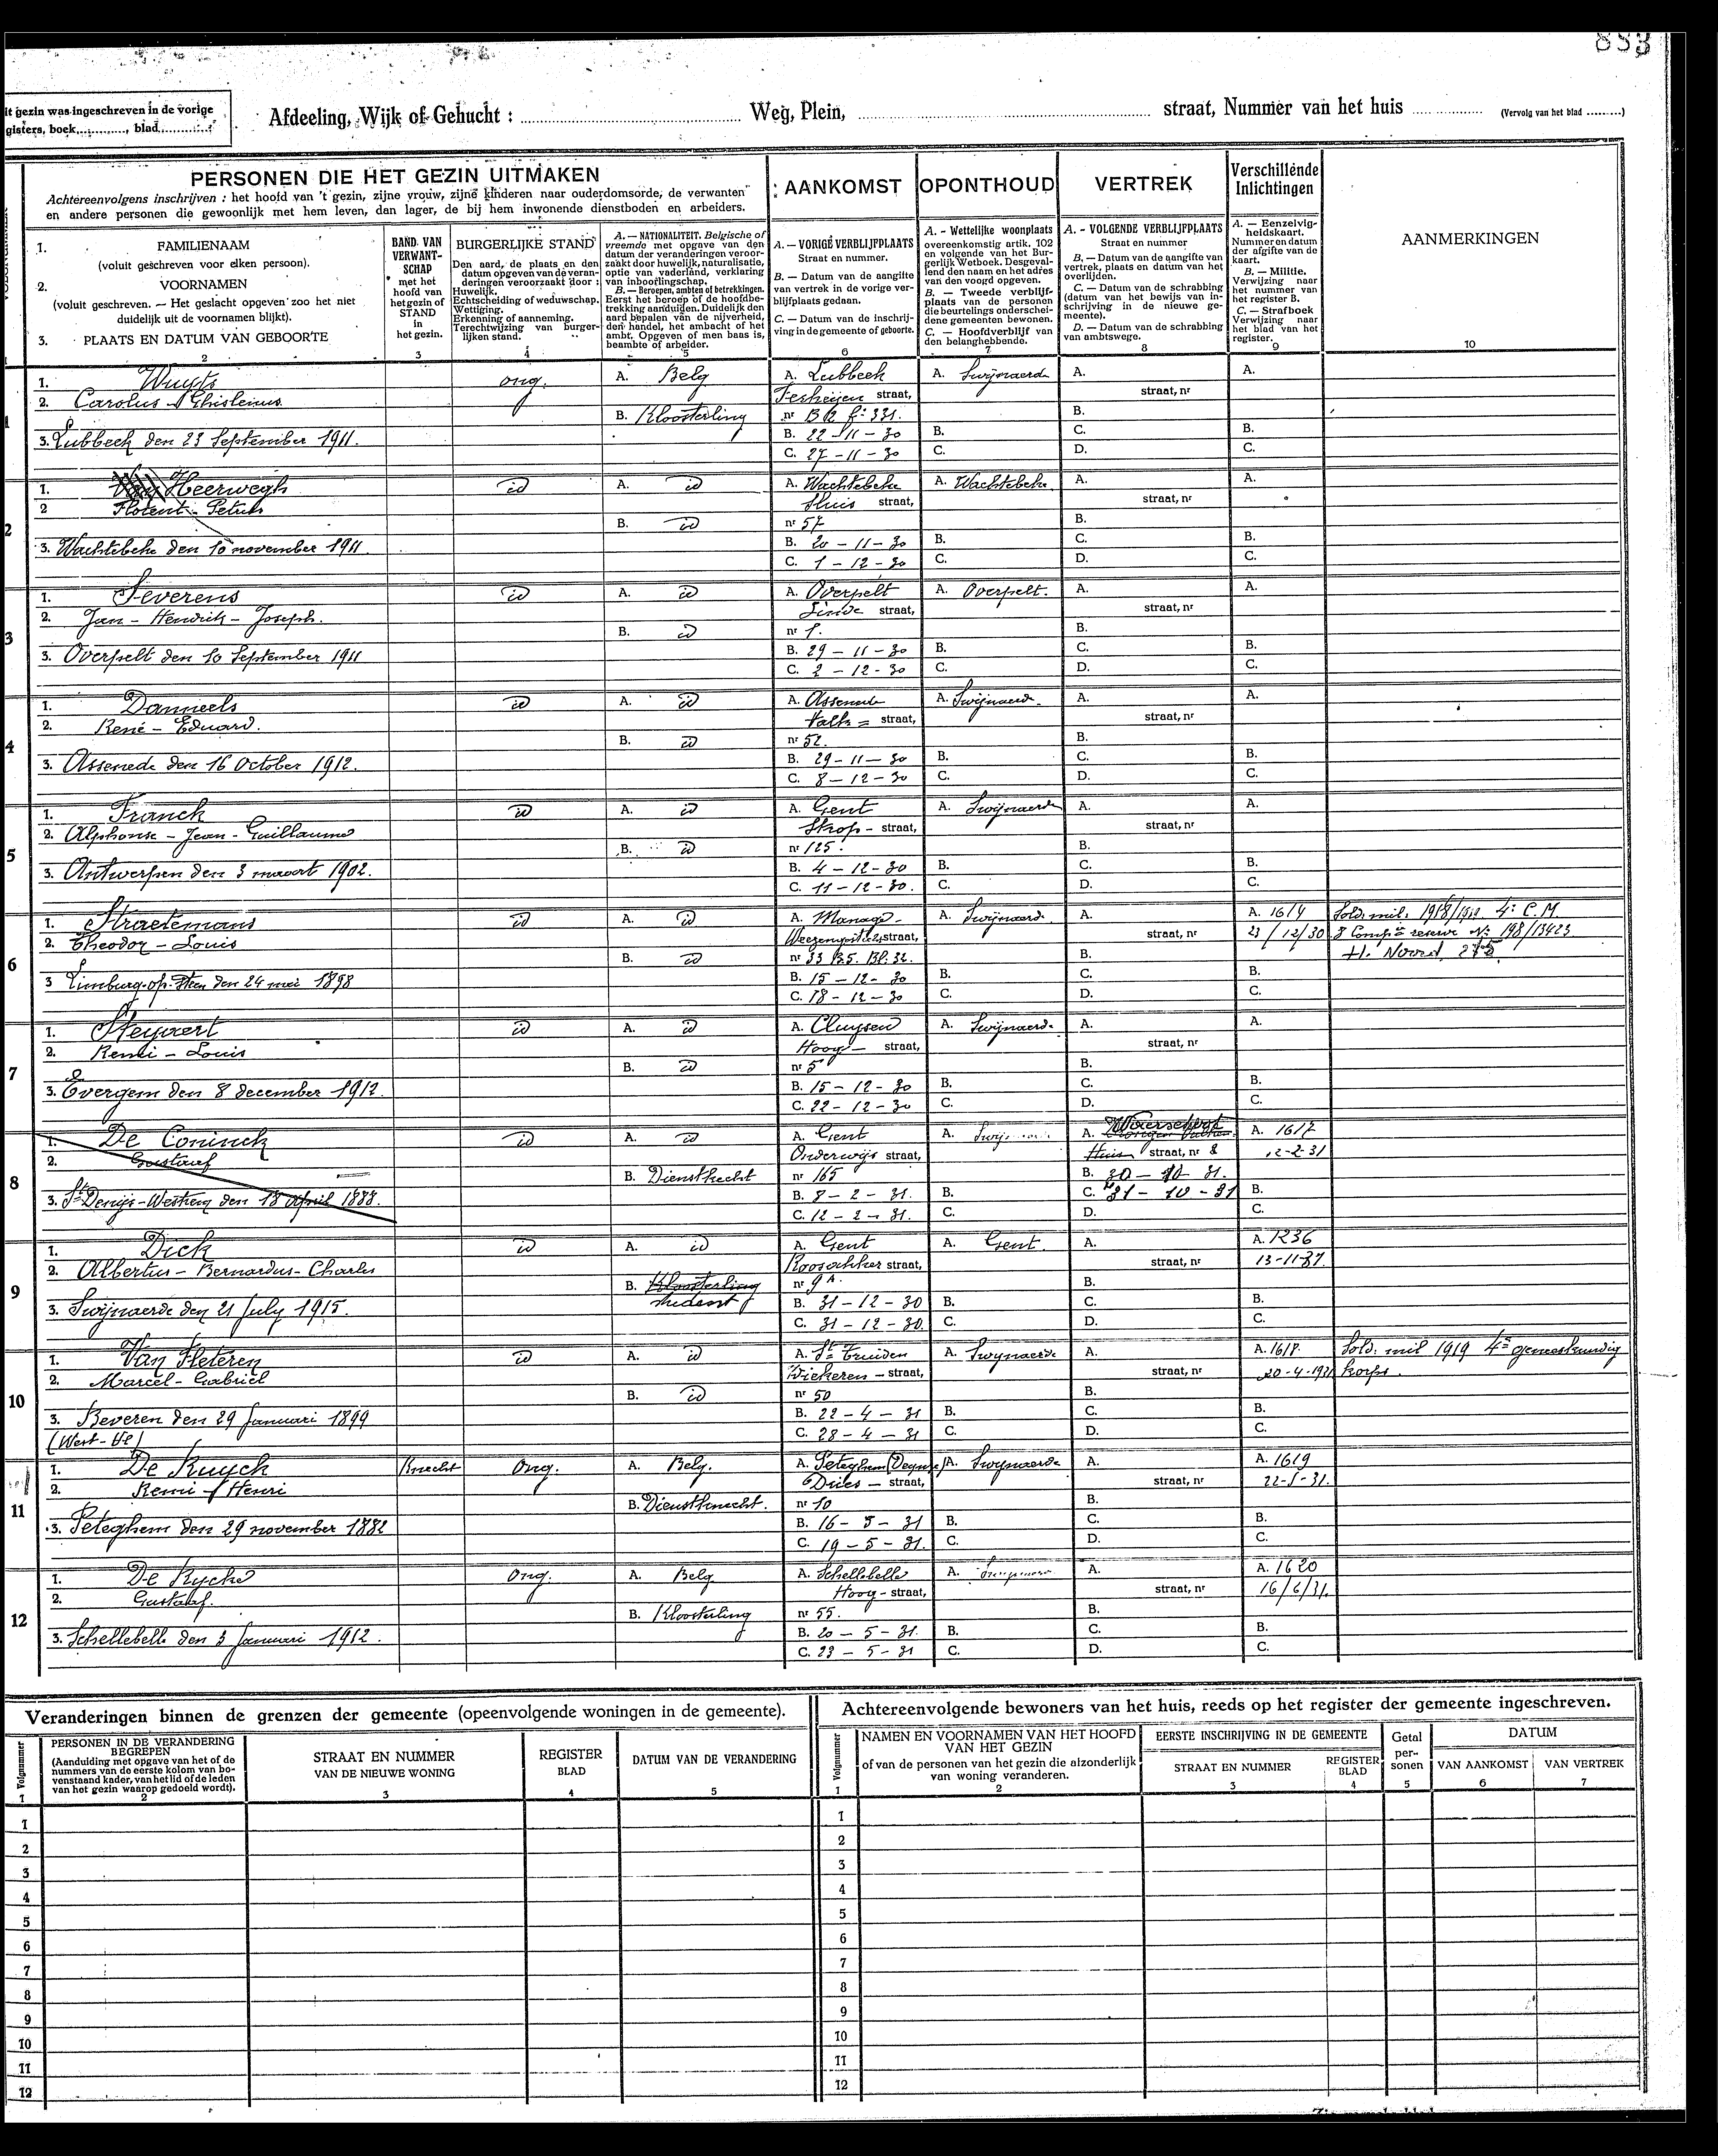 883
it gezin was ingeschreven in de vorige
gisters, boek..........., blad...........
Afdeeling, Wijk of Gehucht : ........................ Weg, Plein, ........................ straat, Nummer van het huis ............ (Vervolg van het blad .........)
PERSONEN DIE HET GEZIN UITMAKEN
Achtereenvolgens inschrijven : het hoofd van 't gezin, zijne vrouw, zijne kinderen naar ouderdomsorde, de verwanten
en andere personen die gewoonlijk met hem leven, dan lager, de bij hem inwonende dienstboden en arbeiders.
AANKOMST
OPONTHOUD
VERTREK
Verschillende
Inlichtingen
AANMERKINGEN
1. FAMILIENAAM
(voluit geschreven voor elken persoon).
2. VOORNAMEN
(voluit geschreven. — Het geslacht opgeven zoo het niet
duidelijk uit de voornamen blijkt).
3. PLAATS EN DATUM VAN GEBOORTE
2
BAND VAN
VERWANT-
SCHAP
met het
hoofd van
het gezin of
STAND
in
het gezin.
3
BURGERLIJKE STAND
Den aard, de plaats en den
datum opgeven van de veran-
deringen veroorzaakt door :
Huwelijk.
Echtscheiding of weduwschap.
Wettiging.
Erkenning of aanneming.
Terechtwijzing van burger-
lijken stand.
4
A. — NATIONALITEIT. Belgische of
vreemde met opgave van den
datum der veranderingen veroor-
zaakt door huwelijk, naturalisatie,
optie van vaderland, verklaring
van inboorlingschap.
B. — Beroepen, ambten of betrekkingen.
Eerst het beroep of de hoofdbe-
trekking aanduiden. Duidelijk den
aard bepalen van de nijverheid,
den handel, het ambacht of het
ambt. Opgeven of men baas is,
beambte of arbeider.
5
A. — VORIGE VERBLIJFPLAATS
Straat en nummer.
B. — Datum van de aangifte
van vertrek in de vorige ver-
blijfplaats gedaan.
C. — Datum van de inschrij-
ving in de gemeente of geboorte.
6
A. - Wettelijke woonplaats
overeenkomstig artik. 102
en volgende van het Bur-
gerlijk Wetboek. Desgeval-
lend den naam en het adres
van den voogd opgeven.
B. — Tweede verblijf-
plaats van de personen
die beurtelings onderschei-
dene gemeenten bewonen.
C. — Hoofdverblijf van
den belanghebbende.
7
A. - VOLGENDE VERBLIJFPLAATS
Straat en nummer
B. — Datum van de aangifte van
vertrek, plaats en datum van het
overlijden.
C. — Datum van de schrabbing
(datum van het bewijs van in-
schrijving in de nieuwe ge-
meente).
D. — Datum van de schrabbing
van ambtswege.
8
A. — Eenzelvig-
heidskaart.
Nummer en datum
der afgifte van de
kaart.
B. — Militie.
Verwijzing naar
het nummer van
het register B.
C. — Strafboek
Verwijzing naar
het blad van het
register.
9
10
1. Wuyts ong. A. Belg A. Lubbeek A. Swijnaerde A. A.
2. Carolus - Ghislenus straat, straat, nr
1 B. Kloosterling nr B 12 f: 331. B.
3. Lubbeek den 23 September 1911. B. 22 - 11 - 30 B. C. B.
C. 27 - 11 - 30 C. D. C.
1. Van Heerwegh id A. id A. Wachtebeke A. Wachtebeke A. A.
2 Florent - Petrus Sluis straat, straat, nr
2 B. id nr 57 B.
3. Wachtebeke den 10 november 1911 B. 20 - 11 - 30 B. C. B.
C. 1 - 12 - 30 C. D. C.
1. Severens id A. id A. Overpelt A. Overpelt. A. A.
2. Jan - Hendrik - Joseph. Linde straat, straat, nr
3 B. id nr 1. B.
3. Overpelt den 10 September 1911 B. 29 - 11 - 30 B. C. B.
C. 2 - 12 - 30 C. D. C.
1. Danneels id A. id A. Assenede A. Swijnaerd. A. A.
2. René - Eduard. Valk = straat, straat, nr
4 B. id nr 52. B.
3. Assenede den 16 October 1912. B. 29 - 11 - 30 B. C. B.
C. 8 - 12 - 30 C. D. C.
1. Franck id A. id A. Gent A. Swijnaerde A. A.
2. Alphonse - Jean - Guillaume Strop - straat, straat, nr
5 B. id nr 125. B.
3. Antwerpen den 3 maart 1902. B. 4 - 12 - 30 B. C. B.
C. 11 - 12 - 30. C. D. C.
1. Straetemans id A. id A. Manage - A. Swijnaerd. A. A. 1614 Sold. mil. 4e C.M.
2. Theodor - Louis straat, straat, nr 23/12/30 8 Compie reserve No: 198/13423
6 B. id nr 33 B5. Bl. 32. B.
3 Limburg-op- den 24 mei 1898 B. 15 - 12 - 30 B. C. B.
C. 18 - 12 - 30 C. D. C.
1. Steyaert id A. id A. Cluysen A. Swijnaerde A. A.
2. Remi - Louis Hoog - straat, straat, nr
7 B. id nr 5 B.
3. Evergem den 8 december 1912. B. 15 - 12 - 30 B. C. B.
C. 22 - 12 - 30 C. D. C.
1. De Coninck id A. id A. Gent A. A. Waerschoot A. 1617
2. Gustaaf Onderwijs straat, straat, nr 8 12-2-31
8 B. Dienstknecht nr 165 B. 30 - 10 - 31.
3. St Denijs-Westrem den 18 April 1888. B. 8 - 2 - 31. B. C. 31 - 10 - 31 B.
C. 12 - 2 - 31. C. D. C.
1. Dick id A. id A. Gent A. Gent. A. A. 1236
2. Albertus - Bernardus - Charles Roosakker straat, straat, nr 13-11-37.
9 B. Kloosterling nr 9 A. B.
student
3. Swijnaerde den 21 July 1915. B. 31 - 12 - 30 B. C. B.
C. 31 - 12 - 30. C. D. C.
1. Van Fleteren id A. id A. St Truiden A. Swynaerde A. A. 1618. Sold. mil 1919 4e geneeskundig
2. Marcel - Gabriel straat, straat, nr 20-4-1931 korps.
10 B. id nr 50 B.
3. Beveren den 29 Januari 1899 B. 22 - 4 - 31 B. C. B.
(West-Vl) C. 28 - 4 - 31 C. D. C.
1. De Kuyck Knecht Ong. A. Belg. A. Peteghem (Deynze) A. Swynaerde A. A. 1619
2. Remi - Henri Dries - straat, straat, nr 22-5-31.
11 B. Dienstknecht. nr 10 B.
3. Peteghem den 29 november 1882 B. 16 - 5 - 31 B. C. B.
C. 19 - 5 - 31. C. D. C.
1. De Rycke Ong. A. Belg A. Schellebelle A. A. A. 1620
2. Gustaaf. Hoog - straat, straat, nr 16/6/31.
12 B. Kloosterling nr 55. B.
3. Schellebelle den 3 Januari 1912. B. 20 - 5 - 31. B. C. B.
C. 23 - 5 - 31 C. D. C.
Veranderingen binnen de grenzen der gemeente (opeenvolgende woningen in de gemeente).
Volgnummer
1
PERSONEN IN DE VERANDERING
BEGREPEN
(Aanduiding met opgave van het of de
nummers van de eerste kolom van bo-
venstaand kader, van het lid of de leden
van het gezin waarop gedoeld wordt).
2
STRAAT EN NUMMER
VAN DE NIEUWE WONING
3
REGISTER
BLAD
4
DATUM VAN DE VERANDERING
5
1
2
3
4
5
6
7
8
9
10
11
12
Achtereenvolgende bewoners van het huis, reeds op het register der gemeente ingeschreven.
Volgnummer
1
NAMEN EN VOORNAMEN VAN HET HOOFD
VAN HET GEZIN
of van de personen van het gezin die afzonderlijk
van woning veranderen.
2
EERSTE INSCHRIJVING IN DE GEMEENTE
STRAAT EN NUMMER
3
REGISTER
BLAD
4
Getal
per-
sonen
5
DATUM
VAN AANKOMST
6
VAN VERTREK
7
1
2
3
4
5
6
7
8
9
10
11
12